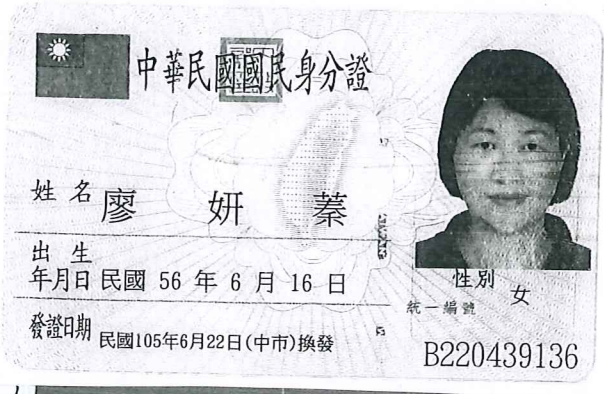 中華民國國民身分證
姓名 廖妍蓁
出生
年月日 民國 56 年 6 月 16 日
性別 女
統一編號
發證日期 民國105年6月22日(中市)換發
B220439136